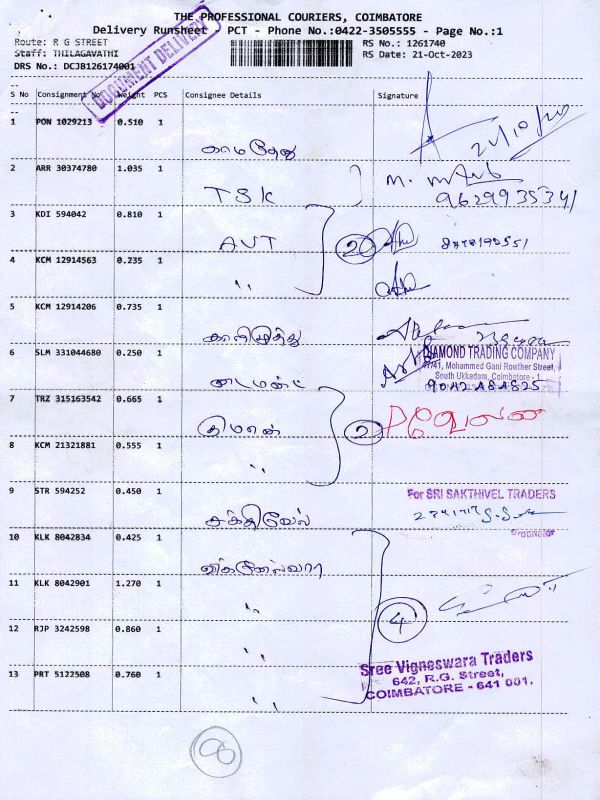 THE PROFESSIONAL COURIERS, COIMBATORE
Delivery Runsheet - PCT - Phone No.:0422-3505555 - Page No.:1
Route: R G STREET
RS No.: 1261740
Staff: THILAGAVATHI
RS Date: 21-Oct-2023
DRS No.: DCJB126174001
DOCUMENT DELIVERY
S No Consignment No Weight PCS Consignee Details Signature
1 PON 1029213 0.510 1
21/10/20
காமதேனு
2 ARR 30374780 1.035 1
TSK
9629935341
3 KDI 594042 0.810 1
AVT 2
4 KCM 12914563 0.235 1
"
5 KCM 12914206 0.735 1
காளிமுத்து
6 SLM 331044680 0.250 1
DIAMOND TRADING COMPANY
47/41, Mohammed Gani Rowther Street,
South Ukkadam, Coimbatore - 1
டைமண்ட் 9042484825
7 TRZ 315163542 0.665 1
2
8 KCM 21321881 0.555 1
"
9 STR 594252 0.450 1
For SRI SAKTHIVEL TRADERS
சக்திவேல்
10 KLK 8042834 0.425 1
விக்னேஸ்வரா
11 KLK 8042901 1.270 1
"
4
12 RJP 3242598 0.860 1
"
Sree Vigneswara Traders
642, R.G. Street,
COIMBATORE - 641 001.
13 PRT 5122508 0.760 1
"